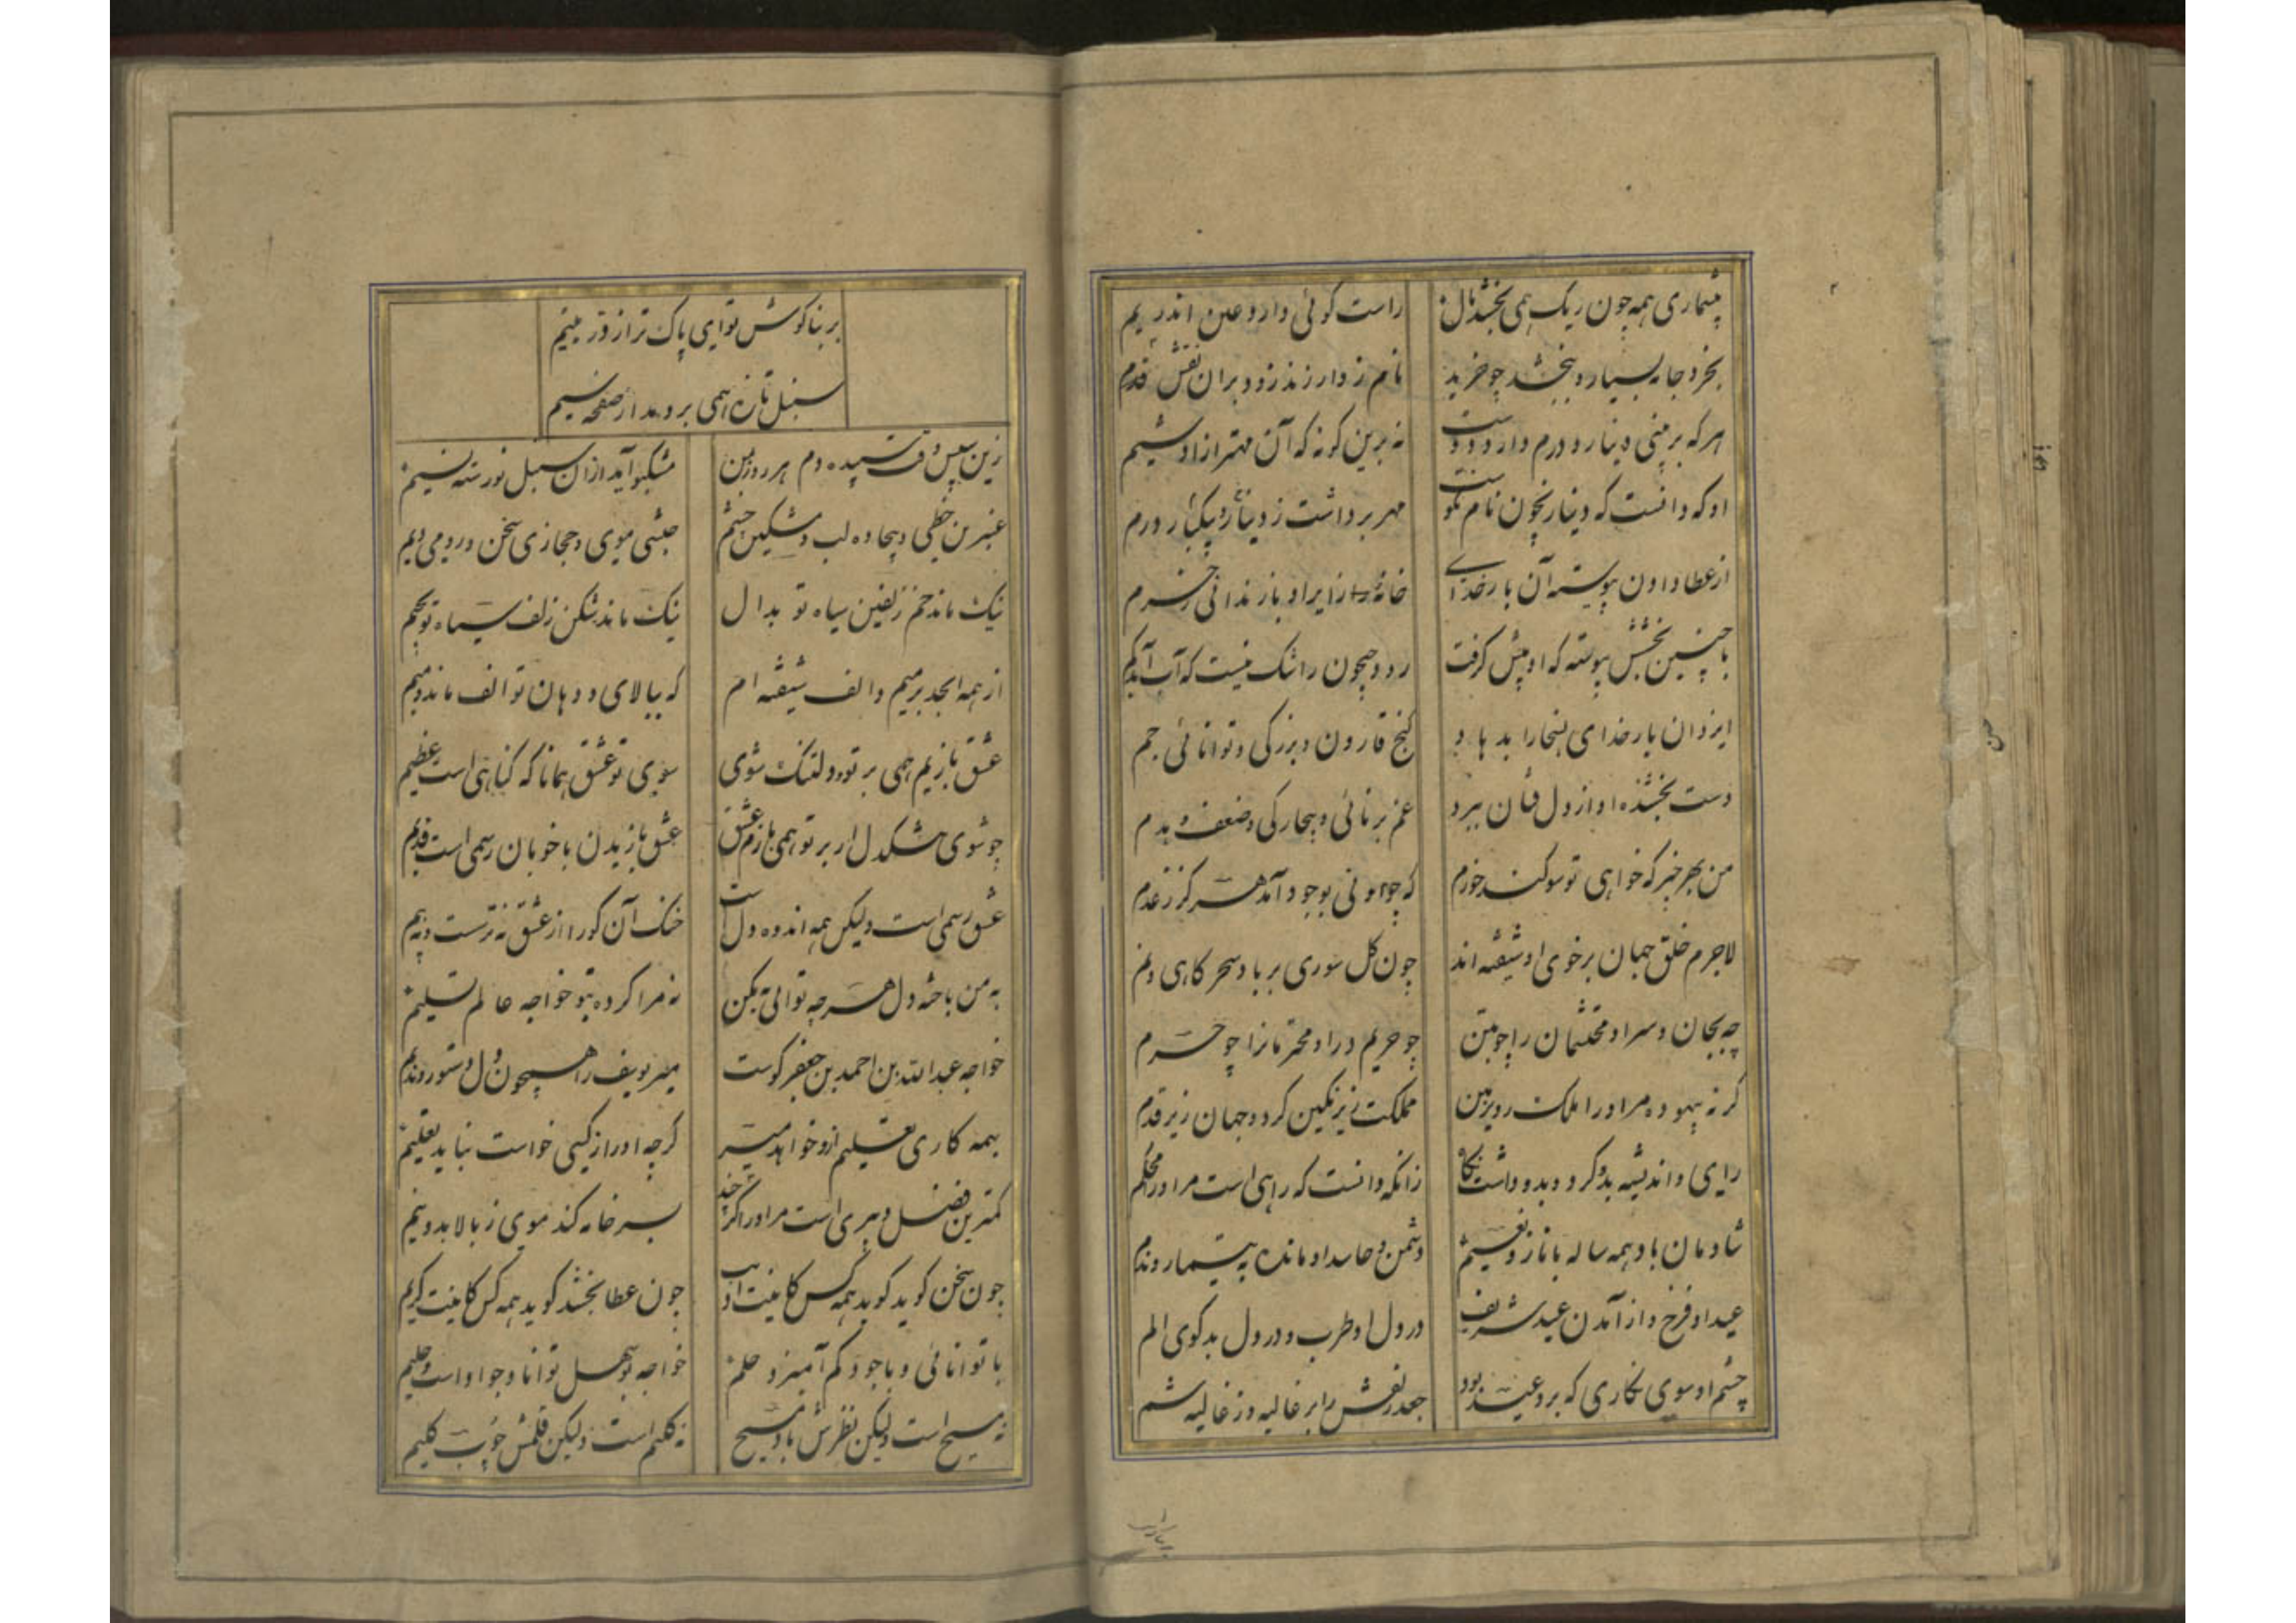 بشماری همه چون ریک همی بخشد مال راست کوئی دارد وعین اندر یم
بخرد جامه بسیار و ببخشد چو خرید نام زوار زند زود بر آن نقش قدم
هر که بر منی دینار و درم دارد دوست نه برین کونه که آن مهتر آزاده شیم
او که دانست که دینار نچون نام نکوست مهر برداشت ز دینار و بیکبار درم
از عطا دادن پیوسته آن بار خدای خانه زایر او باز ندانی ز حرم
با چنین بخشش پیوسته که او پیش کرفت رود جیحون را شک نیست که آب آید کم
ایزدان بار خدای بسخا را بدهاد کنج قارون و بزرکی و توانائی جم
دست بخشنده او از دل فنان ببرد غم برنائی و بیچارکی و ضعف و ندم
من بهر خبر که خواهی تو سوکند خورم که چو او نی بوجود آمد هرکز ز عدم
لاجرم خلق جهان بر خوی او شیفته اند چون کل سوری بر باد سحرکاهی ونم
چه بجان و سر او محتشمان را چو بتن چو حریم در او محترمانرا چو حرم
کر نه بیهوده مر او را ملک روی زمین مملکت زیر نکین کرد و جهان زیر قدم
رای و اندیشه بدو کرد و بدو داشت نکاه زانکه دانست که راهی است مر او را محکم
شادمان باد همه ساله با ناز و نعیم دشمن و حاسد او مانده به تیمار و ندم
عید او فرخ و از آمدن عید شریف در دل او طرب و در دل بدکوی الم
چشم او سوی نکاری که برو عید بود جعد زلفش را بر غالیه و ز غالیه شم
بر بناکوش تو ای پاک تر از در یتیم
سنبل تازه همی بردمد از صفحه سیم
زین سپس وقت سپیده دم هر روز بمن مشکبو آید از ان سنبل نورسته نسیم
عنبرین خطی و بیجاده لب و مشکین چشم حبشی موی و حجازی سخن و رومی دیم
نیک ماند خم زلفین سیاه تو بدال نیک ماند شکن زلف سیاه تو بجیم
از همه ابجد بر میم و الف شیفته ام که ببالای و دهان تو الف ماند و میم
عشق بازیم همی بر تو و دلتنک شوی سوی تو عشق همانا که کناهی است عظیم
چو شوی تنکدل ار بر تو همی بازم عشق عشق بازیدن با خوبان رسمی است قدیم
عشق رسمی است ولیکن همه اندوه دل است خنک آن کو را از عشق نه ترست و نه بیم
به من باخته دل هرچه توانی بکن نه مرا کرده بتو خواجه عالم تسلیم
خواجه عبدالله بن احمد بن جعفر کوست میر یوسف را همچون دل و دستور و ندیم
بهمه کاری تعلیم ازو خواهد میر کرچه او را ز کسی خواست نباید تعلیم
کمترین فضل و هنری است مر او را کر بخشد بسر خامه کند موی ز بالا بدو نیم
چون سخن کوید کوید همه کس کاینت ادیب چون عطا بخشد کوید همه کس کاینت کریم
با توانائی و با جود کم آمیزد حلم خواجه بوسهل توانا و جواد است و حلیم
نه مسیح است ولیکن نظرش باد مسیح نه کلیم است ولیکن قلمش چوب کلیم